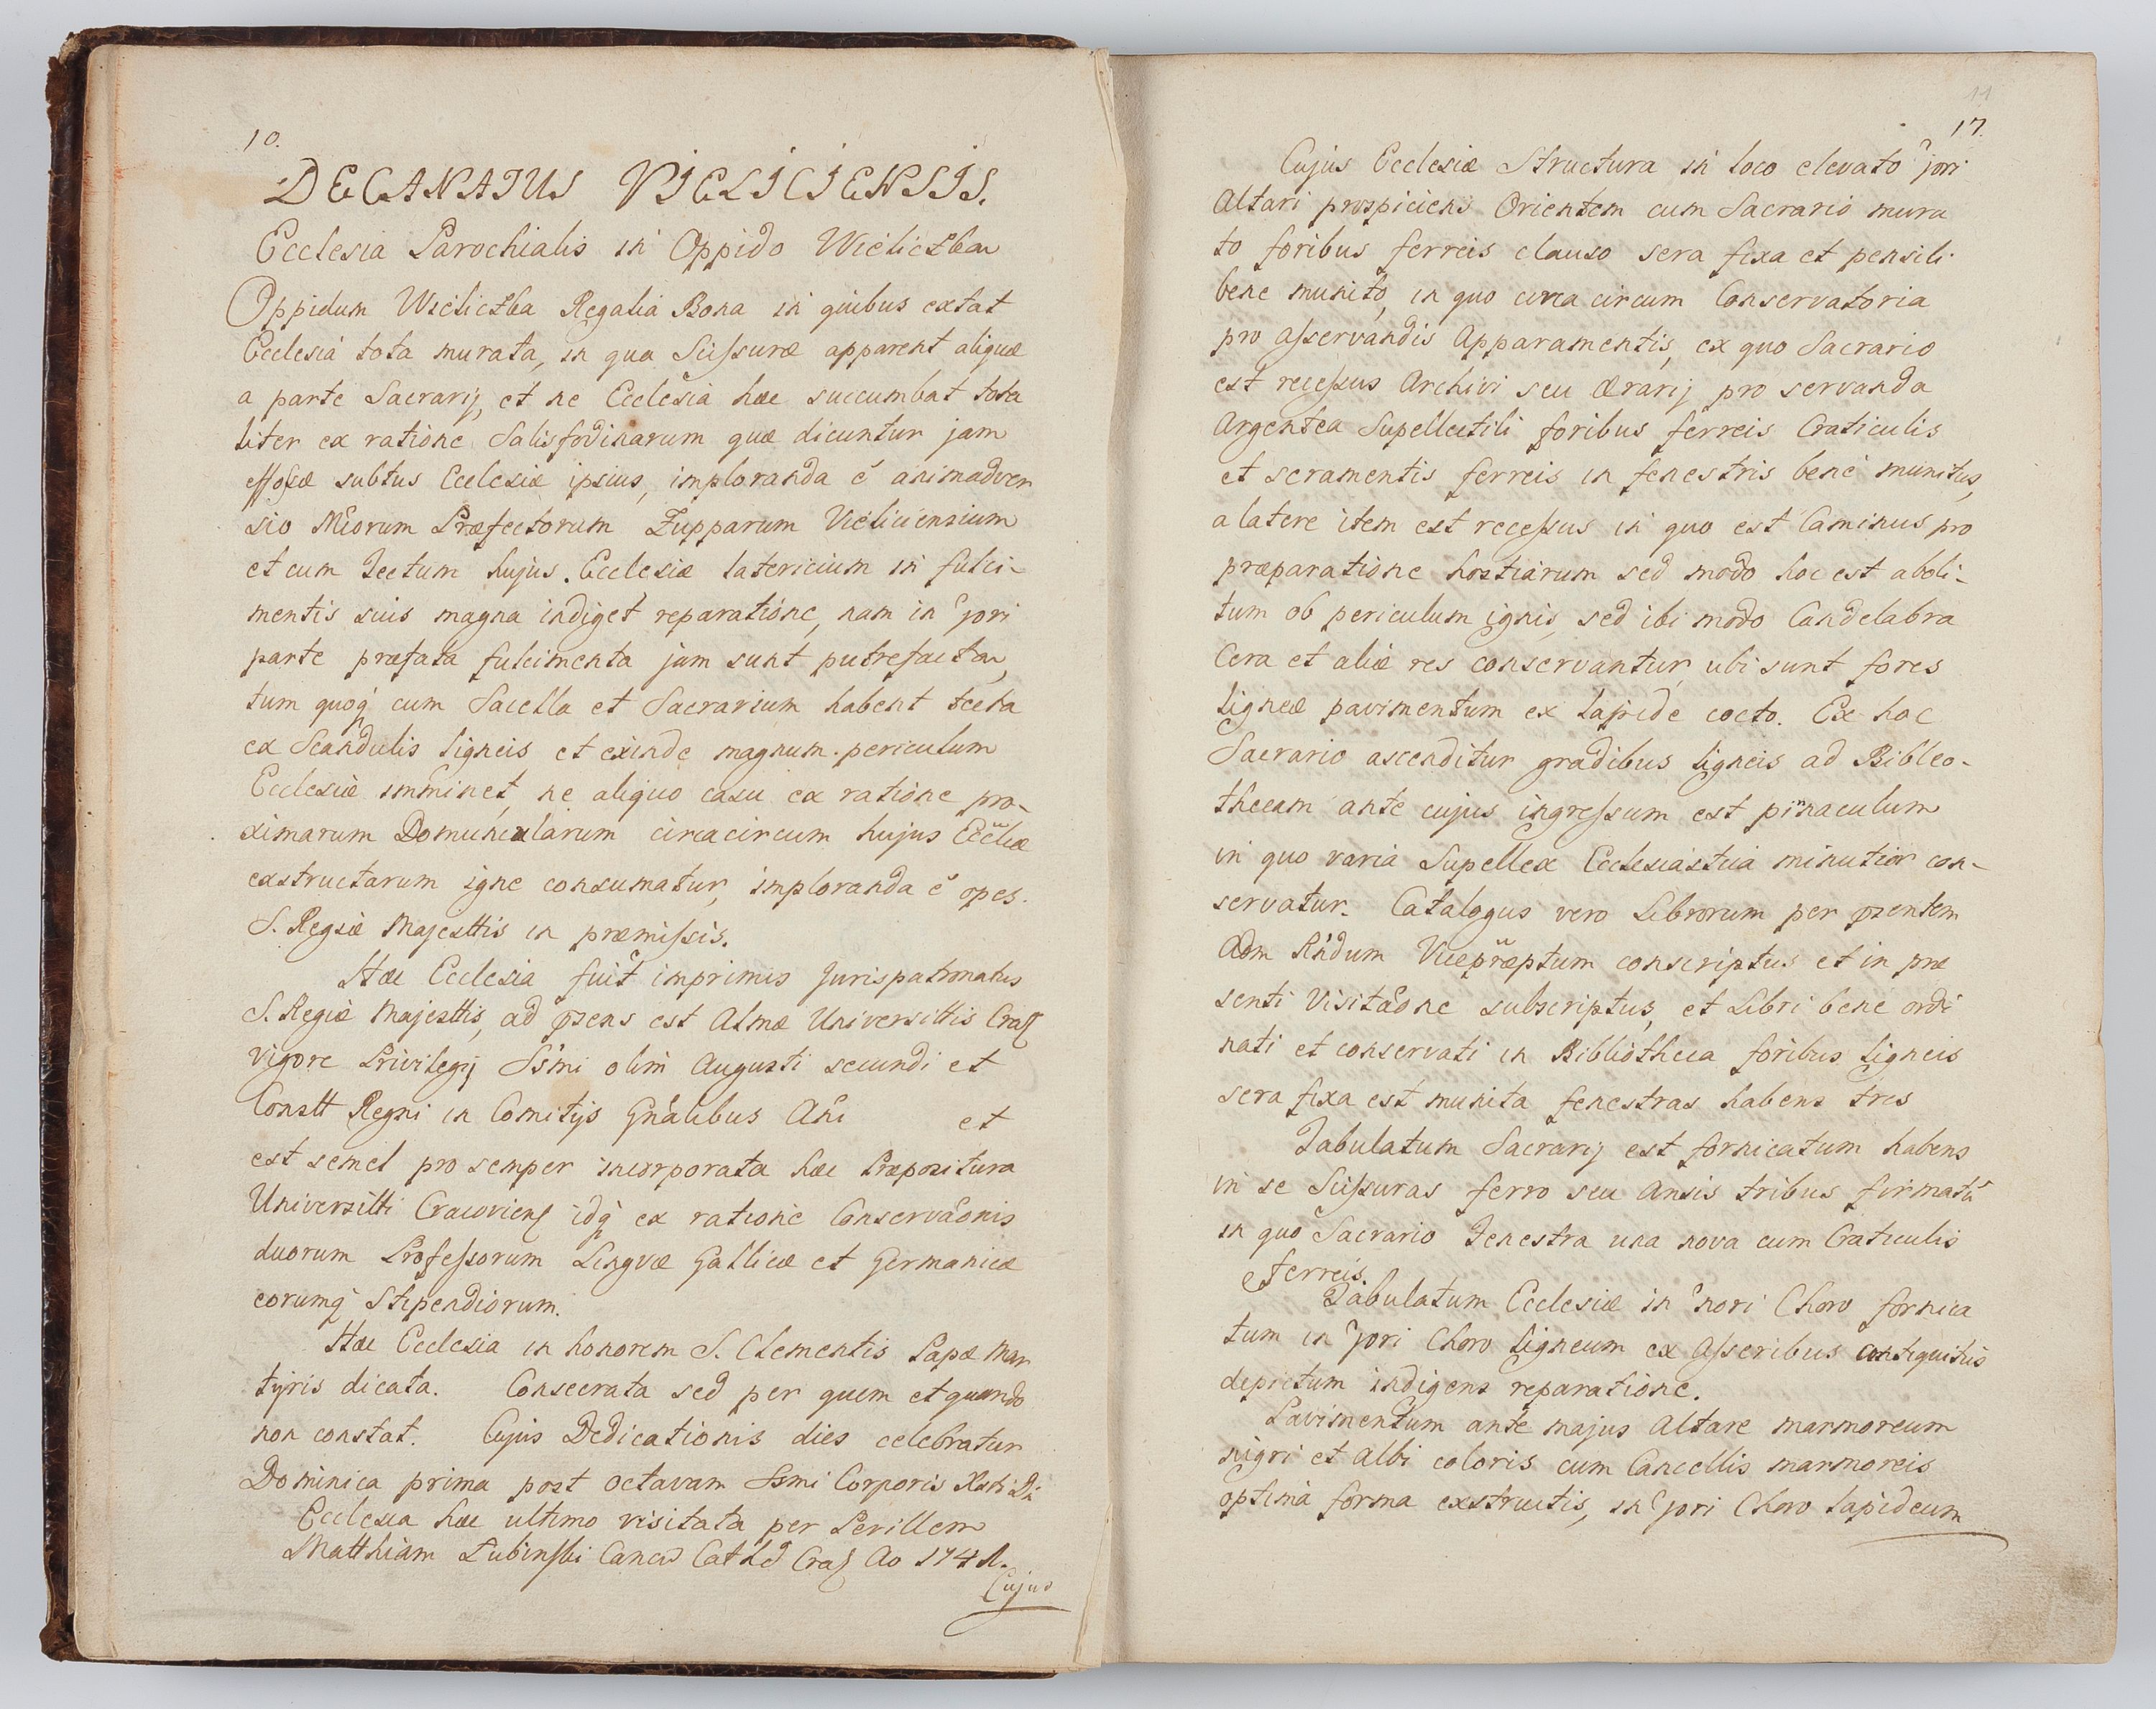 10.
DECANATUS VIELICIENSIS.
Ecclesia Parochialis in Oppido Wieliczka
Oppidum Wieliczka Regalia Bona in quibus extat
Ecclesia tota murata, in qua Scissuræ apparent aliquæ
a parte Sacrarij, et ne Ecclesia hæc succumbat tota
liter ex ratione Salisfodinarum quæ dicuntur jam
effossæ subtus Ecclesiæ ipsius, imploranda ẽ animadver
sio Mcorum Præfectorum Zupparum Vieliciensium
et cum Tectum hujus Ecclesiæ latericium in fulci-
mentis suis magna indiget reparatione, nam in jori
parte præfata fulcimenta jam sunt putrefacta,
tum quoq́ cum Sacella et Sacrarium habent tecta
ex Scandulis ligneis et exinde magnum periculum
Ecclesiæ imminet, ne aliquo casu ex ratione pro-
ximarum Domuncularum circacircum hujus Eccliæ
exstructarum igne consumatur, imploranda ẽ opes.
S. Regiæ Majesttis in præmissis.
Hæc Ecclesia fuit imprimis Jurispatronatus
S. Regiæ Majesttis, ad pzens est Almæ Universittis Crac
vigore Privilegij Ssmi olim Augusti secundi et
Constt Regni in Comitijs Gnalibus Ani et
est semel pro semper incorporata hæc Præpositura
Universitti Cracoviens idq́ ex ratione Conservãonis
duorum Professorum Lingvæ Gallicæ et Germanicæ
eorumq́ Stipendiorum.
Hæc Ecclesia in honorem S. Clementis Papæ Mar
tyris dicata. Consecrata sed per quem et quando
non constat. Cujus Dedicationis dies celebratur
Dominica prima post octavam Ssmi Corporis Xsti
Ecclesia hæc ultimo visitata per Perillem
Matthiam Łubinski Cancum Cathd Crac Ao 1741.
Cujus
11
17.
Cujus Ecclesiæ Structura in loco elevato jori
Altari prospiciens Orientem cum Sacrario mura
to foribus ferreis clauso sera fixa et pensili
bene munito, in quo circa circum Conservatoria
pro asservandis Apparamentis, ex quo Sacrario
est recessus Archivi seu Ærarij pro servanda
Argentea Supellectili foribus ferreis Craticulis
et seramentis ferreis in fenestris bene munitus,
a latere item est recessus in quo est Caminus pro
præparatione hostiarum sed modo hoc est aboli-
tum ob periculum ignis, sed ibi modo Candelabra
Cera et aliæ res conservantur, ubi sunt fores
ligneæ pavimentum ex lapide cocto. Ex hoc
Sacrario ascenditur gradibus ligneis ad Biblео-
thecam ante cujus ingressum est pinnaculum
in quo varia Supellex Ecclesiastica minutior con-
servatur. Catalogus vero Librorum per pzentem
Adm Rndum Vicepræptum conscriptus et in præ
senti Visitãone subscriptus, et Libri bene ordi
nati et conservati in Bibliotheca foribus ligneis
sera fixa est munita fenestras habens tres
Tabulatum Sacrarij est fornicatum habens
in se Scissuras ferro seu Ansis tribus firmatũ
in quo Sacrario Fenestra una nova cum Craticulis
ferreis.
Tabulatum Ecclesiæ in nori Choro fornica
tum in jori Choro ligneum ex Asseribus antiquitus
depictum indigens reparatione.
Pavimentum ante majus Altare marmoreum
nigri et Albi coloris cum Cancellis marmoreis
optima forma exstructis, in jori Choro lapideum